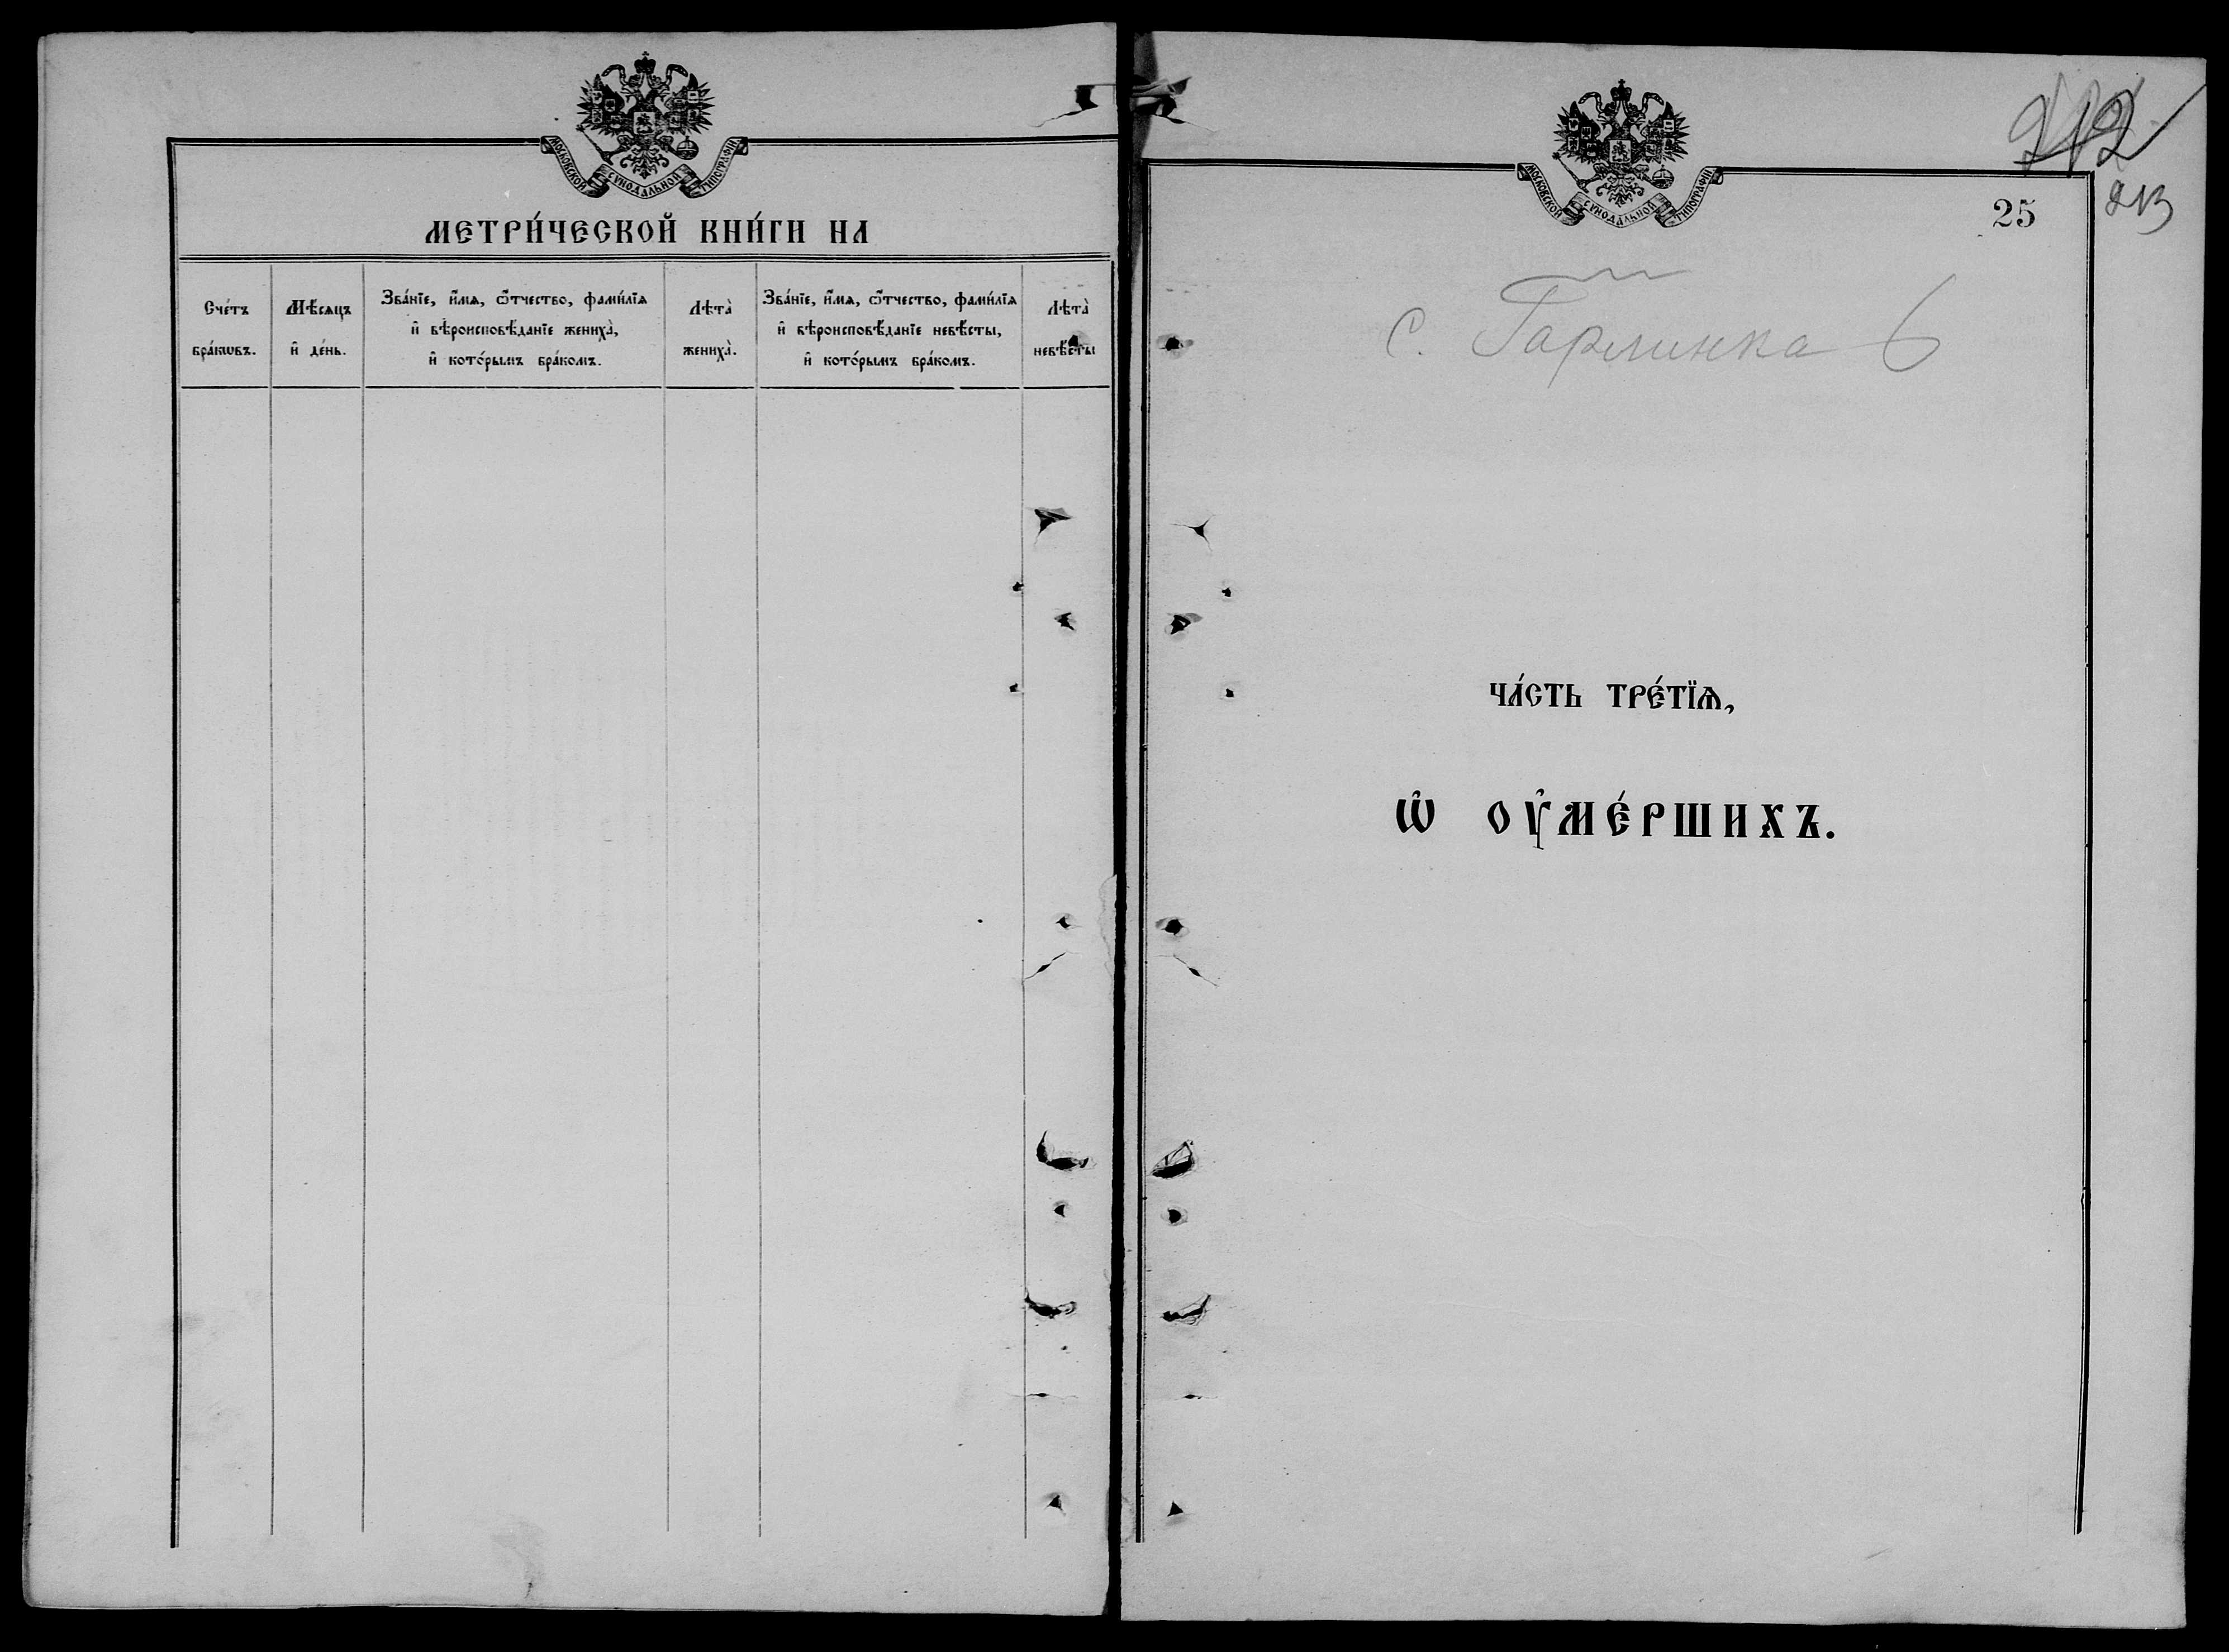 МОСКОВСКОЙ СѴНОДАЛЬНОЙ ТИПОГРАФІИ
МЕТРИ́ЧЕСКОЙ КНИ́ГИ НА
Сче́тъ бра́кѡвъ.
Мѣ́сѧцъ и҆ де́нь.
Зва́нїе, и҆́мѧ, ѻ҆́тчество, фами́лїѧ
и҆ вѣроисповѣ́данїе жениха̀,
и҆ кото́рымъ бра́комъ.
Лѣта̀ жениха̀.
Зва́нїе, и҆́мѧ, ѻ҆́тчество, фами́лїѧ
и҆ вѣроисповѣ́данїе невѣ́сты,
и҆ кото́рымъ бра́комъ.
Лѣта̀ невѣ́сты
МОСКОВСКОЙ СѴНОДАЛЬНОЙ ТИПОГРАФІИ
212
213
25
с. Гарминка 6
ЧА́СТЬ ТРЕ́ТЇѦ,
Ѡ҆ ОУ҆МЕ́РШИХЪ.